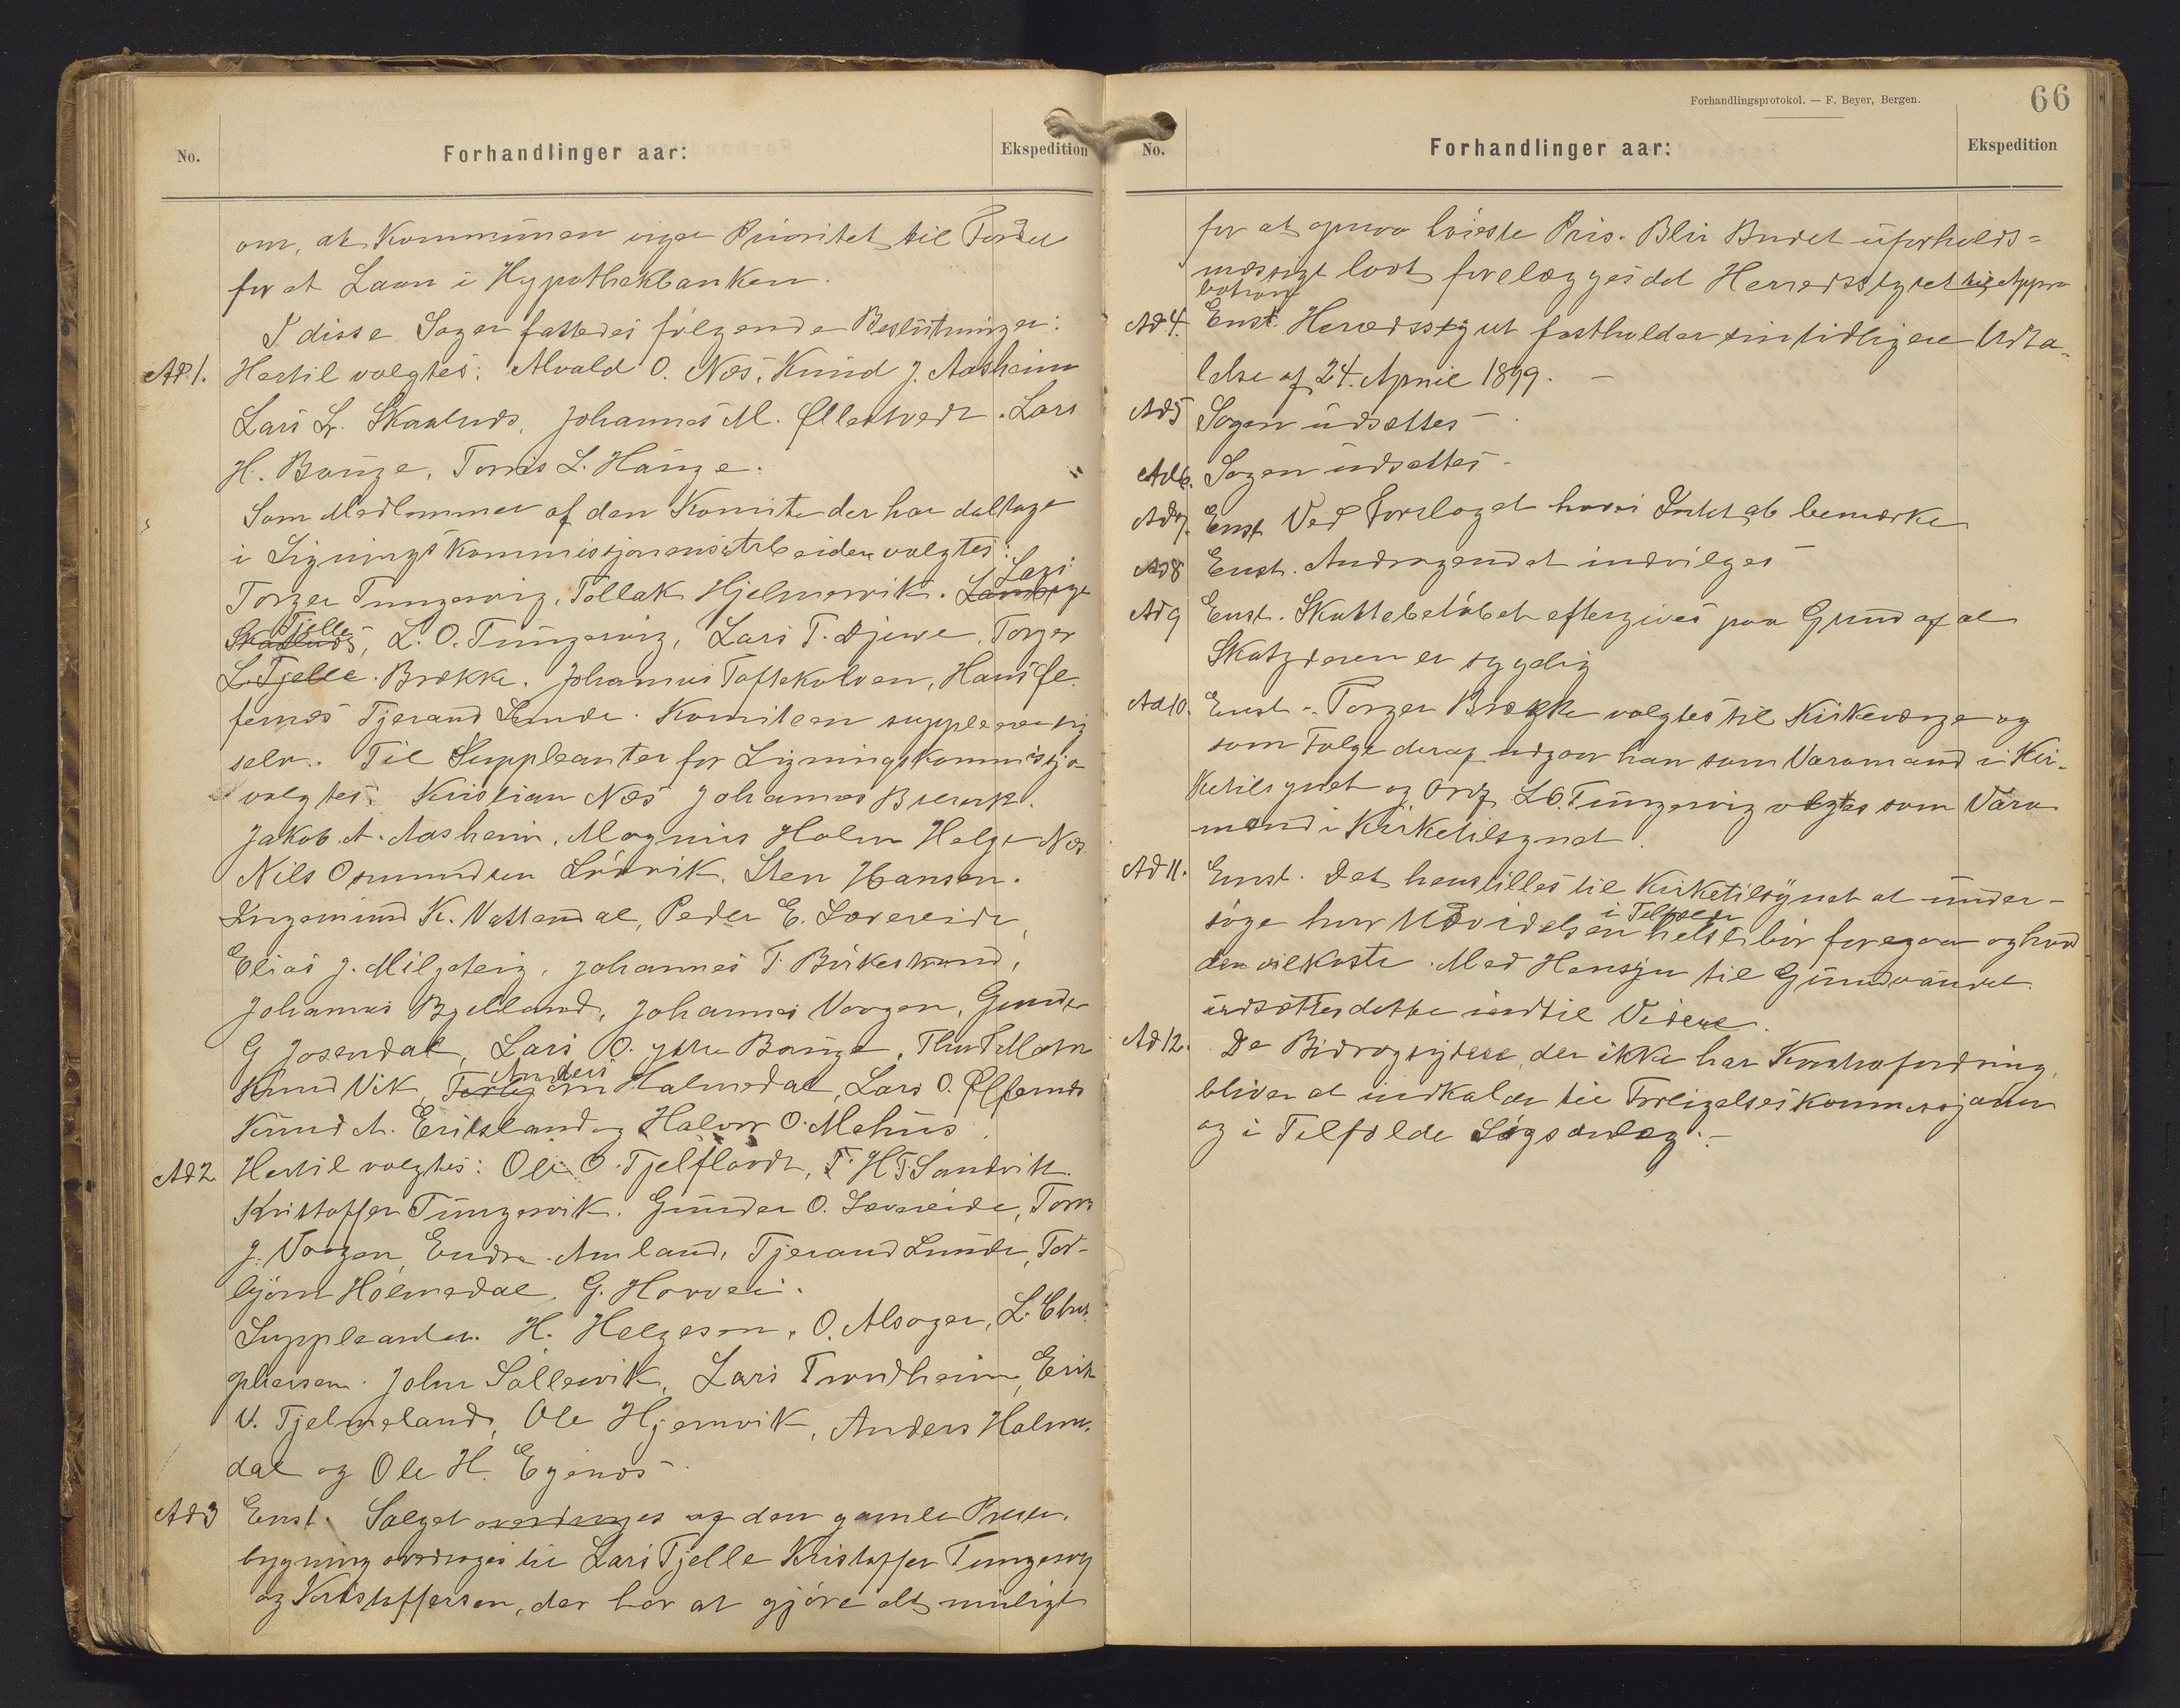 No.
Forhandlinger aar:
Ekspedition
om, at Kommunen viger Prioritet til Fordel
for et Laan i Hypothekbanken.
I disse Sager fattedes følgende Beslutninger:
Ad 1. Hertil valgtes: Alvald O. Næs, Knud J. Aasheim
Lars L. Skaaluds, Johannes M. Øllestvedt. Lars
H. Bauge, Torris L. Hauge.
Som Medlemmer af den Komite der har deltage
i Ligningskommissjonens Arbeider valgtes: Lars
Torger Tungesvig, Tollak Hjelmervik.
Tjelle, L. O. Tungesvig, Lars T. Djuve, Torger
L. Tjelle. Brekke. Johannes Toftekalven, Hans Øl
fernæs Tjerand Lunde. Komiteen supplerer sig
selv. Til Suppleanter for Ligningskommissjo
valgtes: Kristian Næs Johannes
Jakob A. Aasheim, Magnus Holm Helge Næs
Nils Osmundsen Løvik, Sten Hansen.
Ingemund K. Vattendal, Peder E. Sævereide,
Elias J. Milje­teig, Johannes T. Birkestrand,
Johannes Bjelland, Johannes Vaagen, Gunder
G Josendal, Lars O. ytre Bauge,
Knud Vik, Anders Halmedal, Lars O. Ølfernes
Knud A. Eriksland og Halvor O. Mehus.
Ad 2 Hertil valgtes: Ole O. Tjelflaadt, T. H. T. Sandvik.
Kristoffer Tungesvik. Gunder O. Sævereide, Torris
J. Vaagen, Endre Amland, Tjerand Lunde, Tor-
bjørn Holmedal, G. Horvei.
Suppleanter. H. Helgesen, O. Alsager, L. Chri
phersen. John Sallesvik, Lars Trondheim, Erik
V. Tjelmeland, Ole Hjemvik, Anders Halme-
dal og Ole H. Egenæs
Ad 3 Enst. Salget overdrages af den gamle Præste-
bygning overdrages til Lars Tjelle Kristoffer Tungesvig
og Kristoffersen, der har at gjøre alt muligt
Forhandlingsprotokol. — F. Beyer, Bergen.
66
No.
Forhandlinger aar:
Ekspedition
for at opnaa høieste Pris. Blir Budet uforholds=
mæssigt lavt forelægges det Herredsstyret til Appro
bation
Ad 4. Enst. Herredsstyret fastholder sin tidligere Udta-
lelse af 24. April 1899. —
Ad 5 Sagen udsættes
Ad 6. Sagen udsættes
Ad 7. Enst. Ved Forslaget haves Intet at bemærke
Ad 8 Enst. Andragendet indvilges
Ad 9 Enst. Skattebeløbet eftergives paa Grund af at
Skatyderen er sygelig
Ad 10. Enst. Torger Brekke valgtes til Kirkeværge og
som Følge deraf udgaar han som Varamand i Kir-
ketilsynet og Ordf. L. O. Tungesvig valgtes som Vara
mand i Kirketilsynet.
Ad 11. Enst. Det henstilles til Kirketilsynet at under-
i Tilfælde
søge hvor Udvidelsen helst bør foregaa og hvad
den vil koste. Med Hensyn til Grundvandet
udsættes dette indtil Videre.
Ad 12. De Bidragsydere, der ikke har Kontrafordring,
bliver at indkalde til Forligelseskommissjonen
og i Tilfælde Søgsanlæg. —